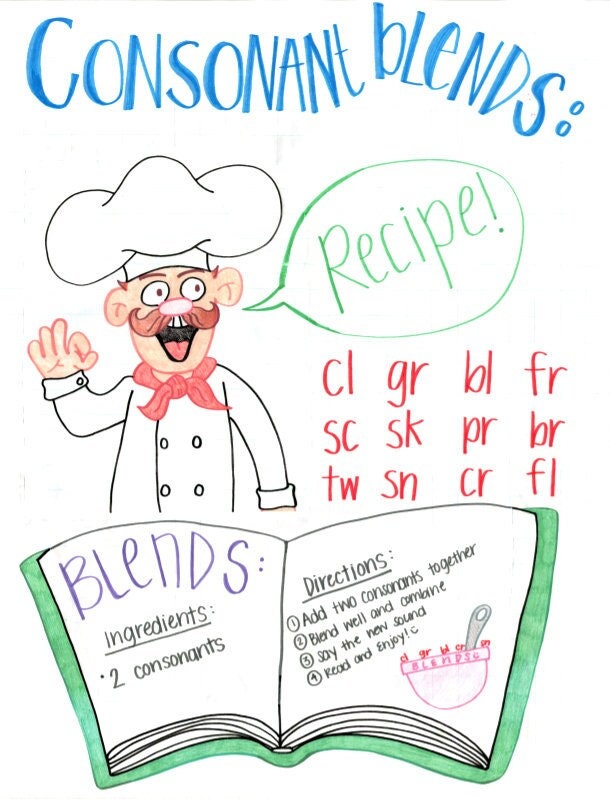 CONSONANt blENDS:
Recipe!
cl gr bl fr
sc sk pr br
tw sn cr fl
BLENDS:
Ingredients:
• 2 consonants
Directions:
① Add two consonants together
② Blend well and combine
③ Say the new sound
④ Read and Enjoy!
cl gr bl cr sn
BLENDS